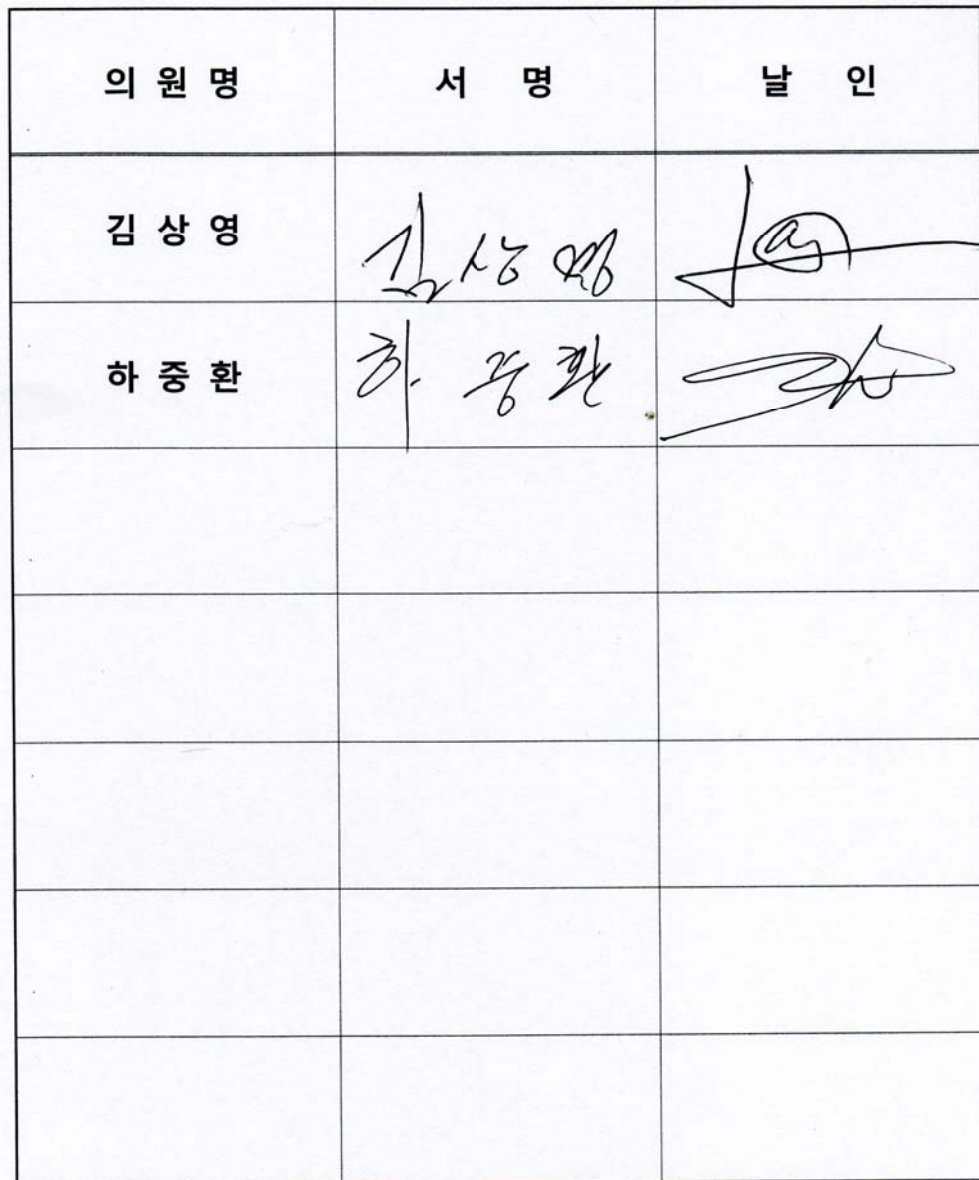 의 원 명 서 명 날 인
김 상 영 김 상 영
하 중 환 하 중 환